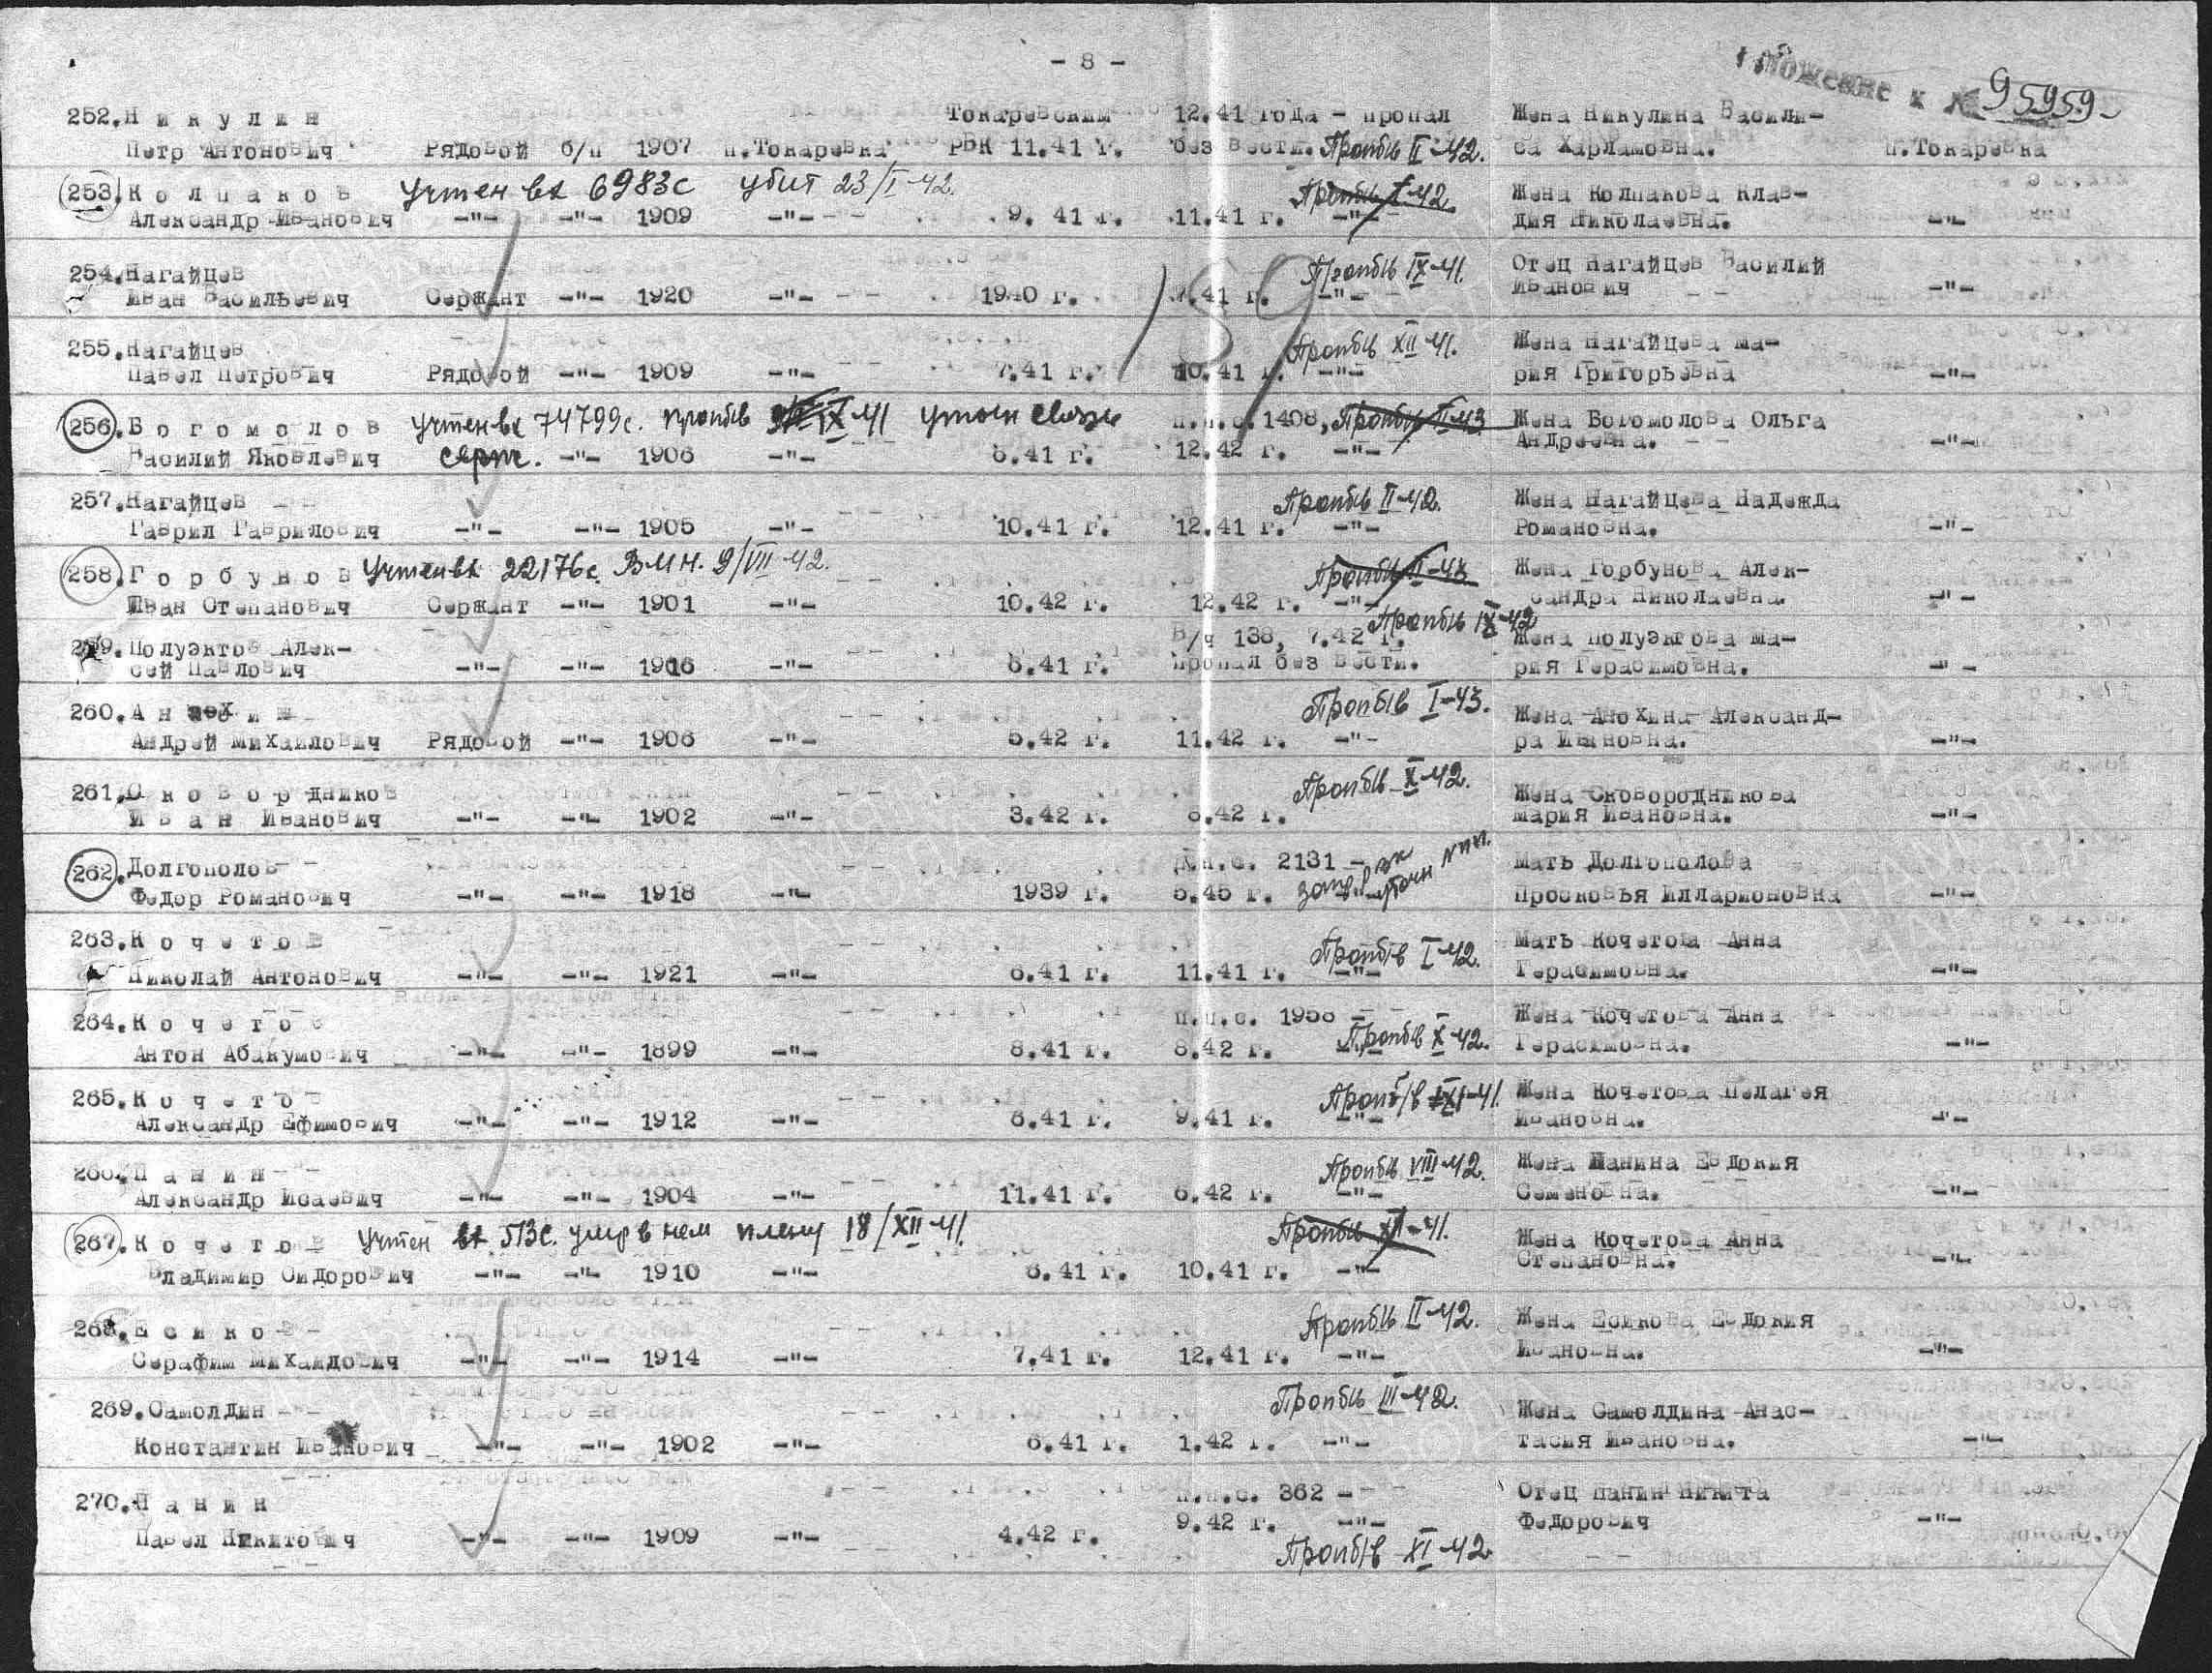 - 8 -
приложение к № 95959
252. Н и к у л и н Токаревским 12.41 года - пропал Жена Никулина Васили-
Петр Антонович Рядовой б/п 1907 п.Токаревка РВК 11.41 г. без вести. Проп б/в II-42. са Харламовна. п.Токаревка
253. К о л п а к о в Учтен вх 6983с убит 23/I-42. Проп б/в I-42 Жена Колпакова Клав-
Александр Иванович -"- -"- 1909 -"- 9. 41 г. 11.41 г. -"- дия Николаевна. -"-
254. Нагайцев Проп б/в IX-41. Отец Нагайцев Василий
Иван Васильевич Сержант -"- 1920 -"- 1940 г. 7.41 г. -"- Иванович -"-
159
255. Нагайцев Проп б/в XII-41. Жена Нагайцева Ма-
Павел Петрович Рядовой -"- 1909 -"- 7.41 г. 10.41 г. -"- рия Григорьевна -"-
256. Б о г о м о л о в Учтен вх 74799с. проп б/в IX-41 уточн связь п.п.с. 1408, Проп б/в II-43 Жена Богомолова Ольга
Василий Яковлевич серж. -"- 1906 -"- 6.41 г. 12.42 г. -"- Андреевна. -"-
257. Нагайцев Проп б/в II-42. Жена Нагайцева Надежда
Гаврил Гаврилович -"- -"- 1905 -"- 10.41 г. 12.41 г. -"- Романовна. -"-
258. Г о р б у н о в Учтен вх 22176с. ВМН. 9/VII-42. Проп б/в II-43 Жена Горбунова Алек-
Иван Степанович Сержант -"- 1901 -"- 10.42 г. 12.42 г. -"- сандра Николаевна. -"-
Проп б/в IX-42
259. Полуэктов Алек- В/ч 138, 7.42 г. Жена Полуэктова Ма-
сей Павлович -"- -"- 1916 -"- 6.41 г. пропал без вести. рия Герасимовна. -"-
260. А н о х и н Проп б/в I-43. Жена Анохина Александ-
Андрей Михайлович Рядовой -"- 1906 -"- 5.42 г. 11.42 г. -"- ра Ивановна. -"-
261. С к о в о р дников Проп б/в X-42. Жена Сковородникова
И в а н Иванович -"- -"- 1902 -"- 3.42 г. 8.42 г. Мария Ивановна. -"-
262. Долгополов п.п.с. 2131 - Мать Долгополова
Федор Романович -"- -"- 1918 -"- 1939 г. 5.45 г. -"- Просковья Илларионовна -"-
263. К о ч е т о в Проп б/в I-42. Мать Кочетова Анна
Николай Антонович -"- -"- 1921 -"- 6.41 г. 11.41 г. -"- Герасимовна. -"-
264. К о ч е т о в п.п.с. 1958 - Жена Кочетова Анна
Антон Абакумович -"- -"- 1899 -"- 8.41 г. 8.42 г. Проп б/в X-42. Герасимовна. -"-
265. К о ч е т о в Проп б/в XI-41. Жена Кочетова Пелагея
Александр Ефимович -"- -"- 1912 -"- 6.41 г. 9.41 г. -"- Ивановна. -"-
266. П а н и н Проп б/в VIII-42. Жена Панина Евдокия
Александр Исаевич -"- -"- 1904 -"- 11.41 г. 6.42 г. -"- Семеновна. -"-
267. К о ч е т о в Учтен вх 513с. умер в нем плену 18/XII-41. Проп б/в XII-41. Жена Кочетова Анна
Владимир Сидорович -"- -"- 1910 -"- 6.41 г. 10.41 г. -"- Степановна. -"-
268. Е с и к о в Проп б/в II-42. Жена Есикова Евдокия
Серафим Михайлович -"- -"- 1914 -"- 7.41 г. 12.41 г. -"- Ивановна. -"-
269. Самолдин Проп б/в III-42. Жена Самолдина Анас-
Константин Иванович -"- -"- 1902 -"- 6.41 г. 1.42 г. -"- тасия Ивановна. -"-
270. П а н и н п.п.с. 362 - Отец Панин Никита
Павел Никитович -"- -"- 1909 -"- 4.42 г. 9.42 г. -"- Федорович -"-
Проп б/в XI-42